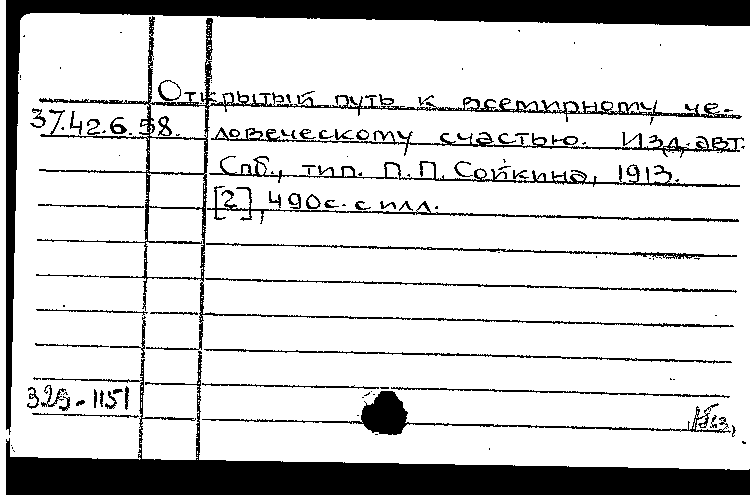 Открытый путь к всемирному че-
37.42.6.58. ловеческому счастью. Изд. авт.
Спб., тип. П.П. Сойкина, 1913.
[2], 490с. с илл.
329-1151